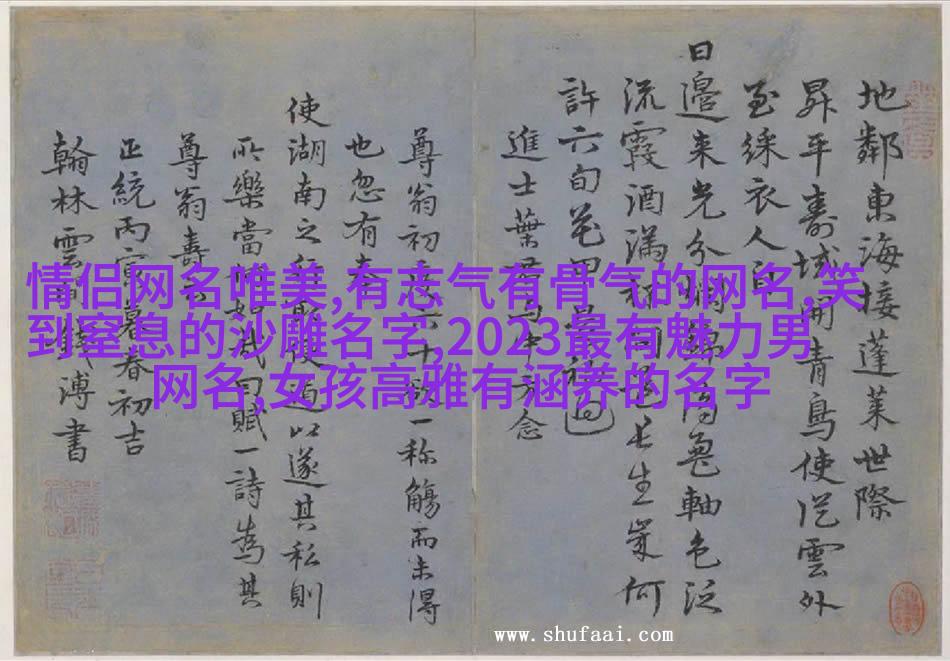 地鄰東海接蓬萊世際
昇平壽域開青鳥使從雲外
至綵衣人自
日邊來光分龜軸色泛
流霞酒滿杯長生歲何
許六旬花甲回
進士葉中方念
尊翁初度六十一称觴而未得
也忽有奉
使湖南之以遂其私則
所樂當何如哉同賦一詩為其
尊翁壽云
正統丙寅暮春初吉
翰林雲間錢溥書
情侣网名唯美,有志气有骨气的网名,笑
到窒息的沙雕名字,2023最有魅力男
网名,女孩高雅有涵养的名字
www.shufaai.com